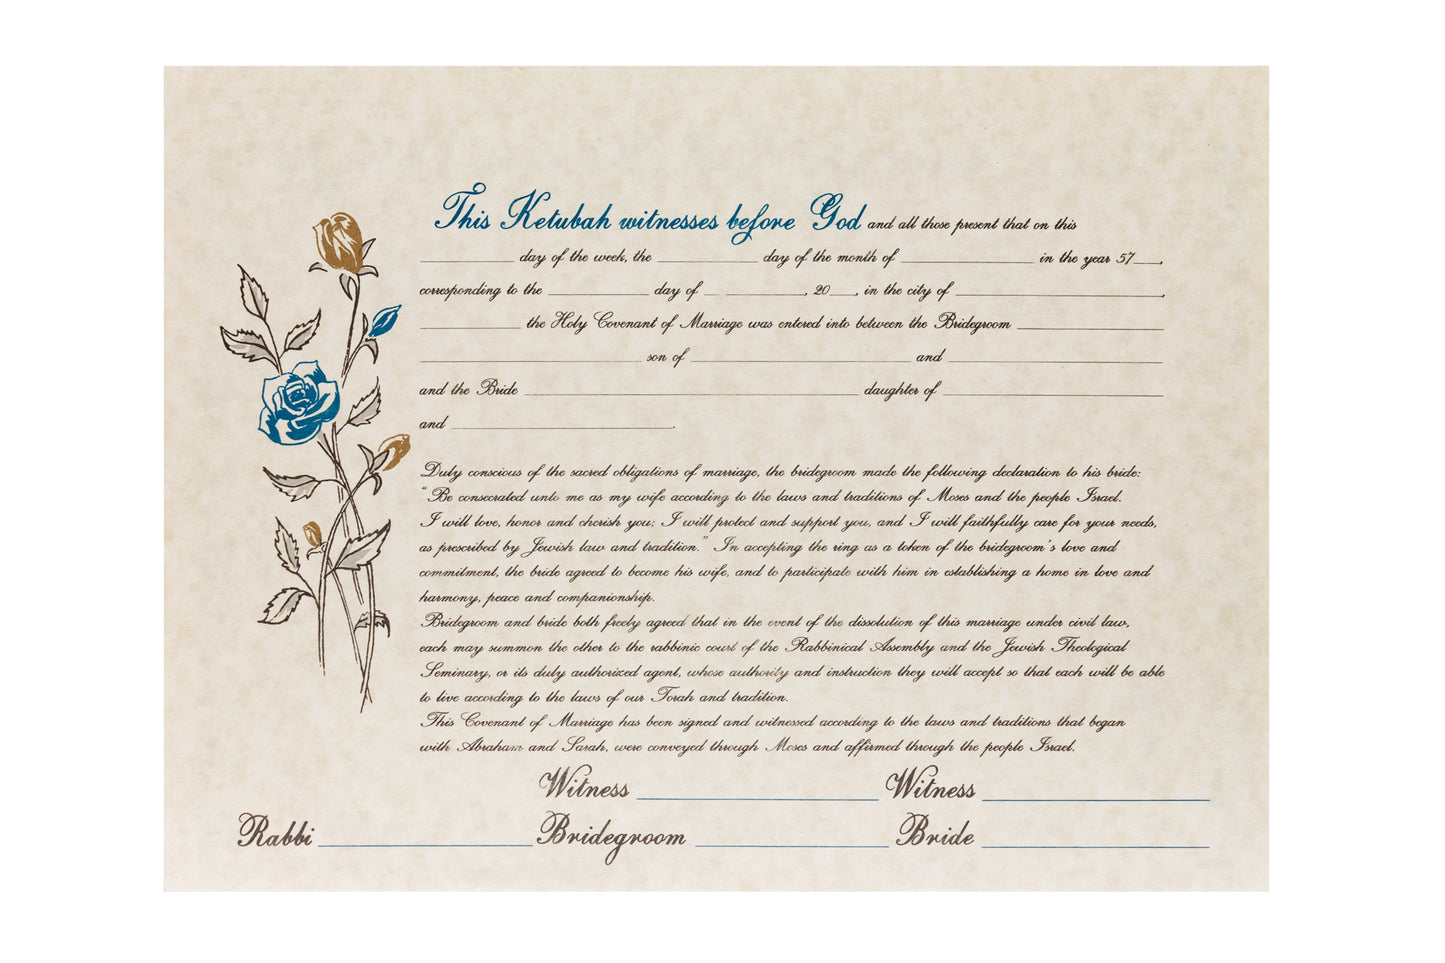 This Ketubah witnesses before God and all those present that on this
____ day of the week, the ____ day of the month of ____ in the year 57__,
corresponding to the ____ day of ____, 20__, in the city of ____,
____ the Holy Covenant of Marriage was entered into between the Bridegroom ____
____ son of ____ and ____
and the Bride ____ daughter of ____
and ____.
Duly conscious of the sacred obligations of marriage, the bridegroom made the following declaration to his bride:
"Be consecrated unto me as my wife according to the laws and traditions of Moses and the people Israel.
I will love, honor and cherish you; I will protect and support you, and I will faithfully care for your needs,
as prescribed by Jewish law and tradition." In accepting the ring as a token of the bridegroom's love and
commitment, the bride agreed to become his wife, and to participate with him in establishing a home in love and
harmony, peace and companionship.
Bridegroom and bride both freely agreed that in the event of the dissolution of this marriage under civil law,
each may summon the other to the rabbinic court of the Rabbinical Assembly and the Jewish Theological
Seminary, or its duly authorized agent, whose authority and instruction they will accept so that each will be able
to live according to the laws of our Torah and tradition.
This Covenant of Marriage has been signed and witnessed according to the laws and traditions that began
with Abraham and Sarah, were conveyed through Moses and affirmed through the people Israel.
Witness ____ Witness ____
Rabbi ____ Bridegroom ____ Bride ____